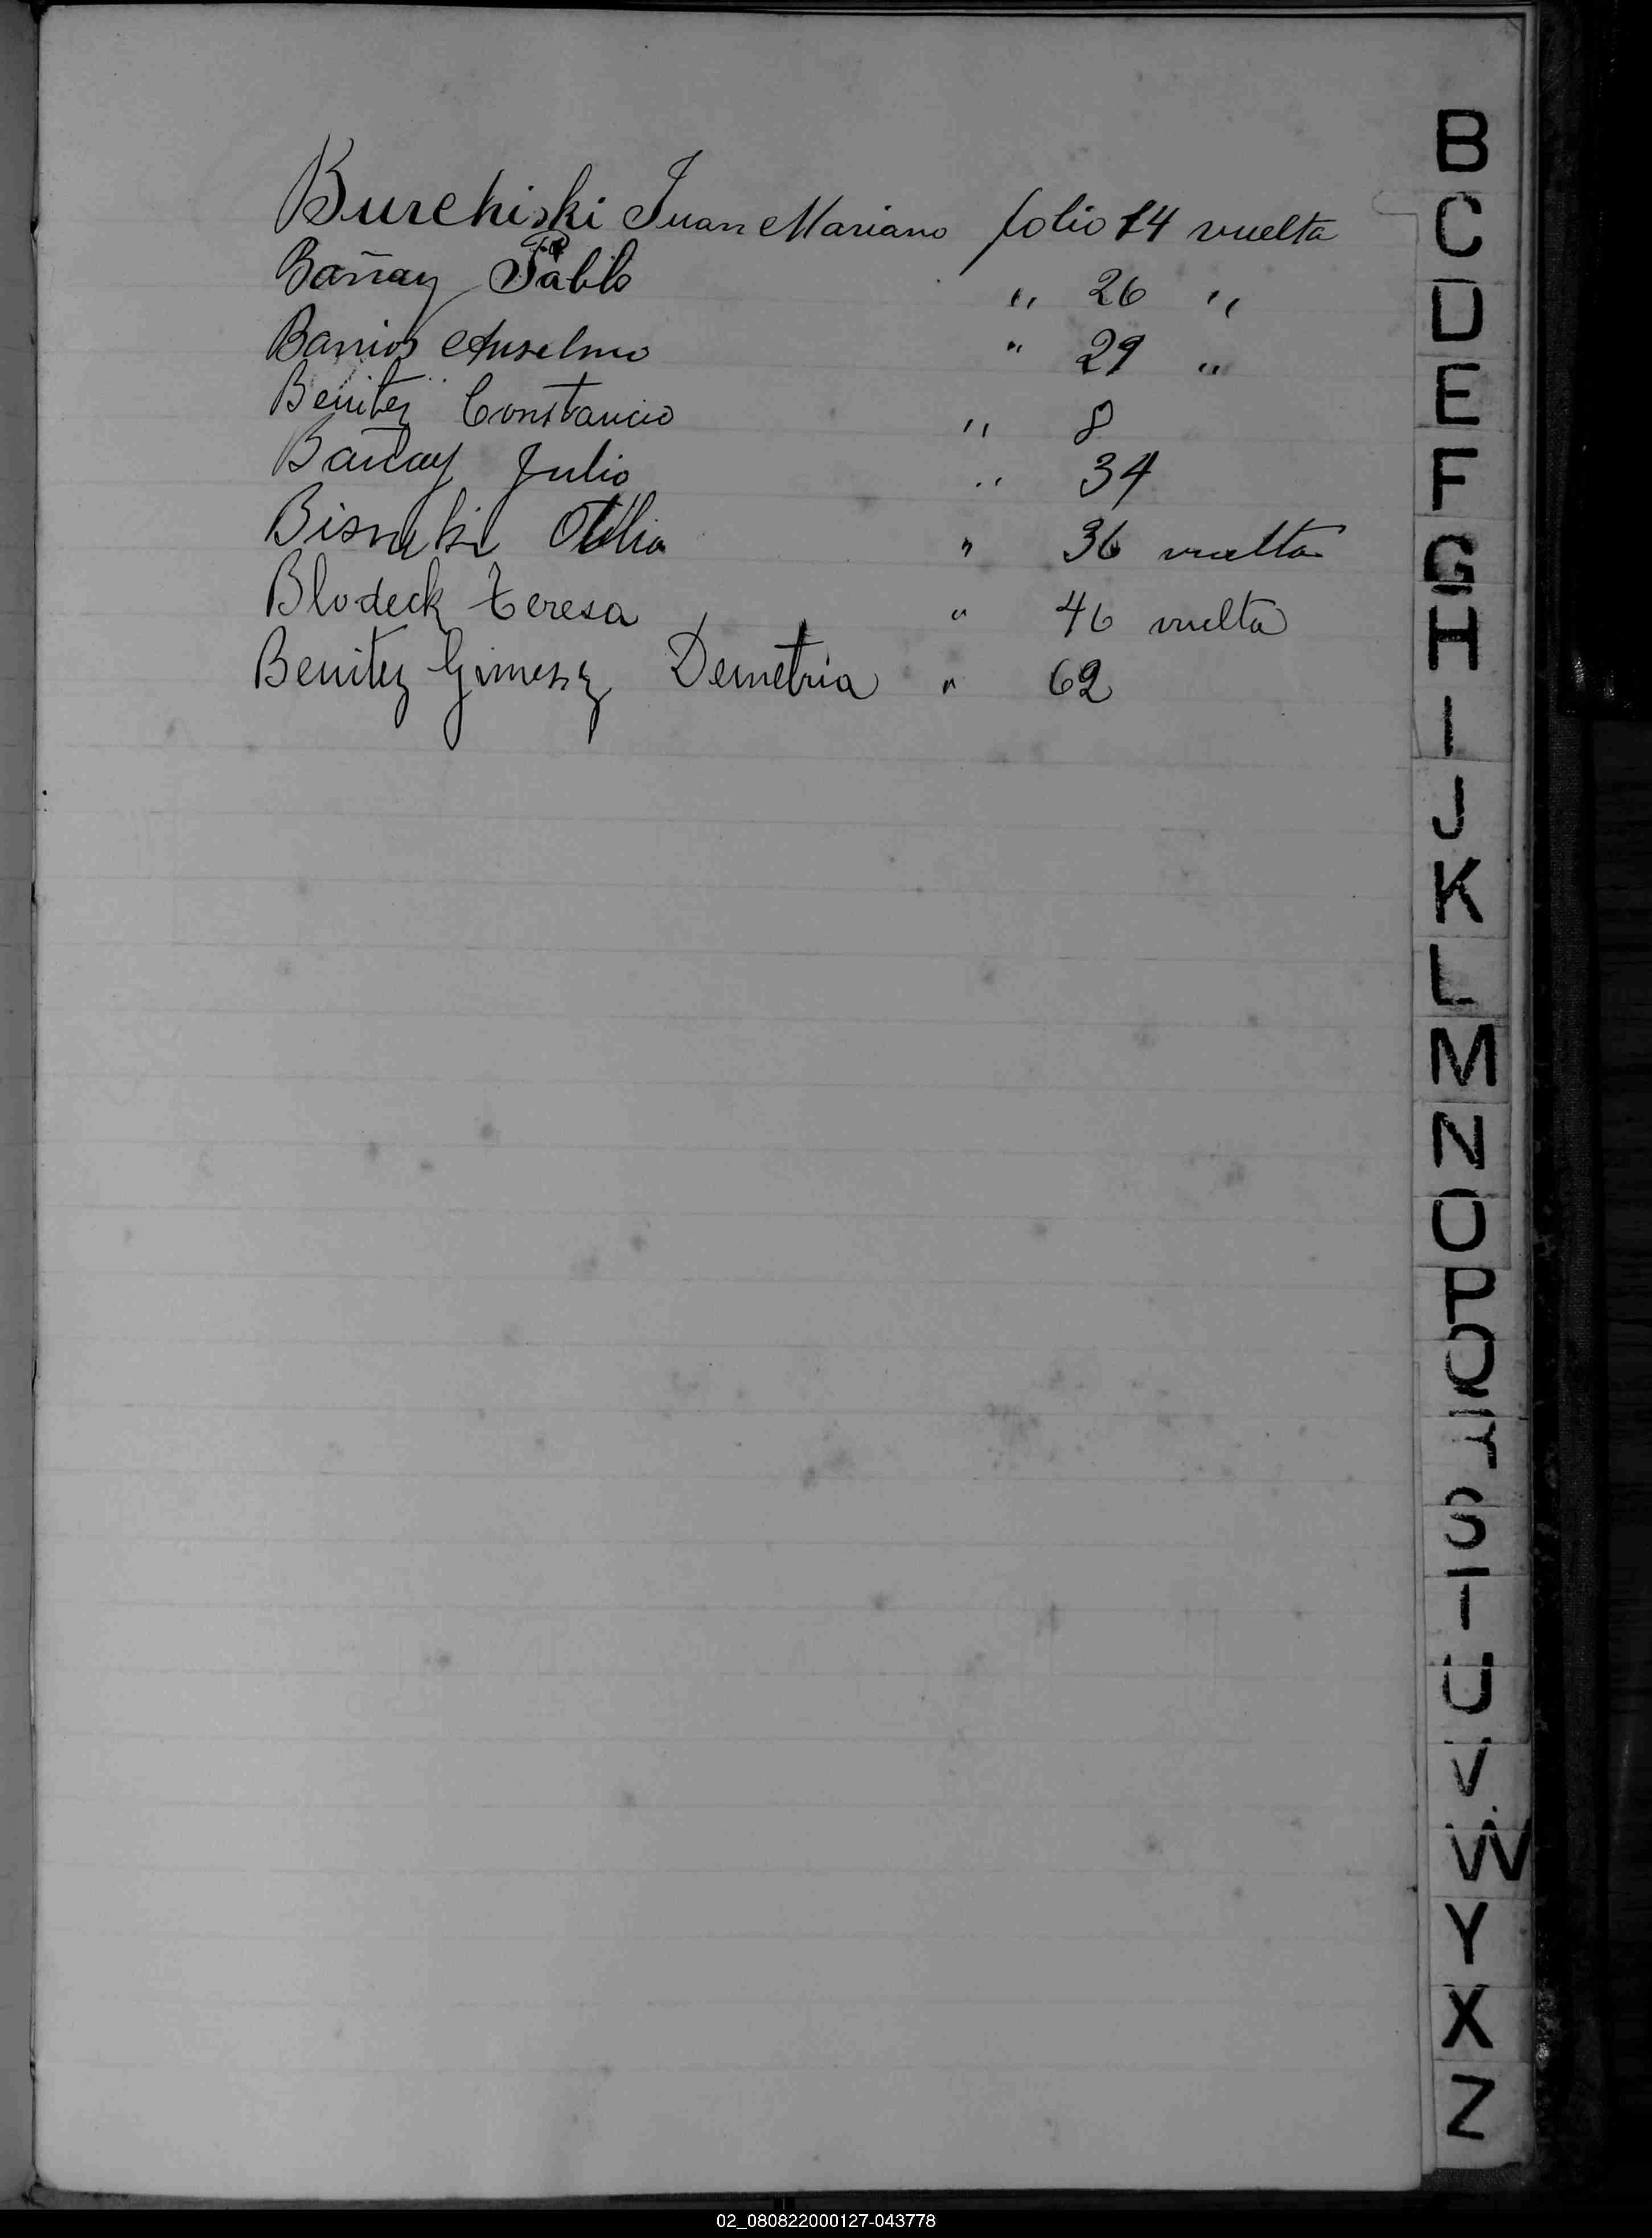 Burchiski Juan Mariano folio 14 vuelta
Bañay Pablo " 26 "
Barrios Anselmo " 29 "
Benitez Constancio " 8
Bañay Julio " 34
Otilia " 36 vuelta
Blodeck Teresa " 46 vuelta
Benitez Gimenez Demetria " 62
B
C
D
E
F
G
H
I
J
K
L
M
N
O
P
Q
S
T
U
V
W
Y
X
Z
02_080822000127-043778